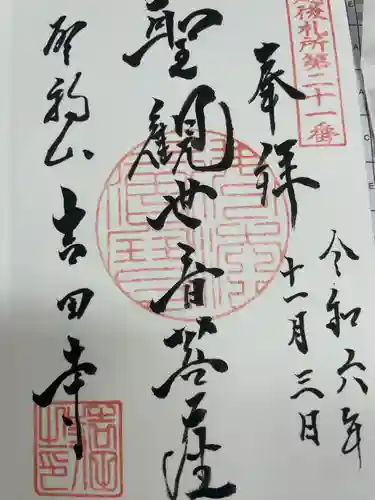 後札所第二十一番
奉拝
令和六年
十一月三日
聖観世音菩薩
聖福山
吉田寺